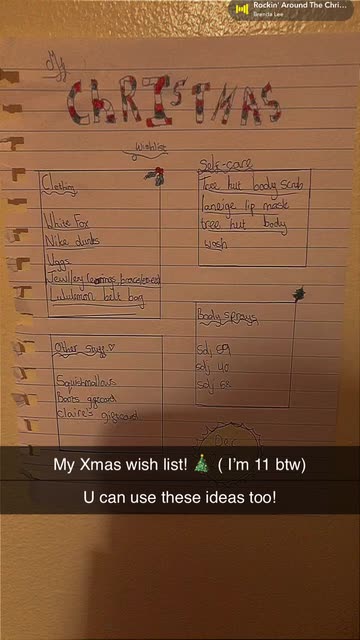 Rockin' Around The Chri...
Brenda Lee
My
CHRISTMAS
Wishlist
Clothing
White Fox
Nike dunks
Uggs
Jewllery (earrings, bracelets etc)
Lululemon belt bag
Self-care
Tree hut body scrub
laneige lip mask
tree hut body
wash
Body sprays
Sdj 59
Sdj 40
Sdj 68
Other stuff ♡
Squishmallows
Boots giftcard
Claire's giftcard
Dec
My Xmas wish list! 🎄 ( I'm 11 btw)
U can use these ideas too!